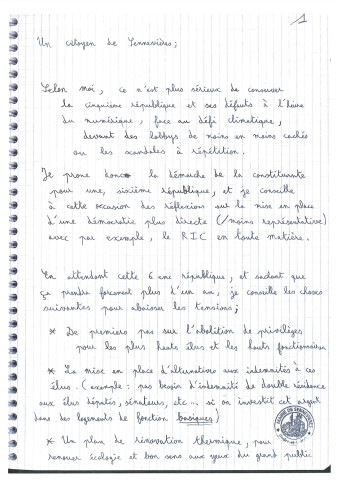 1
Un citoyen de Sennevières;
Selon moi, ce n'est plus sérieux de conserver
la cinquième république et ses défauts à l'heure
du numérique, face au défi climatique,
devant des lobbys de moins en moins cachés
ou les scandales à répétition.
Je prone donc la démarche de la constituante
pour une, sixième république, et je conseille
à cette occasion des réflexions sur la mise en place
d'une démocratie plus directe (/moins représentative)
avec par exemple, le RIC en toute matière.
En attendant cette 6 eme république, et sachant que
ça prendra forcément plus d'un an, je conseille les choses
suivantes pour abaisser les tensions;
* De premiers pas sur l'abolition de privilèges
pour les plus hauts élus et les hauts fonctionnaires
* La mise en place d'alternatives aux indemnités à ces
élus. (exemple: pas besoin d'indemnité de double résidence
aux élus députés, sénateurs, etc... si on investit cet argent
dans des logements de fonction basiques)
* Un plan de rénovation thermique, pour
renouer écologie et bon sens aux yeux du grand public